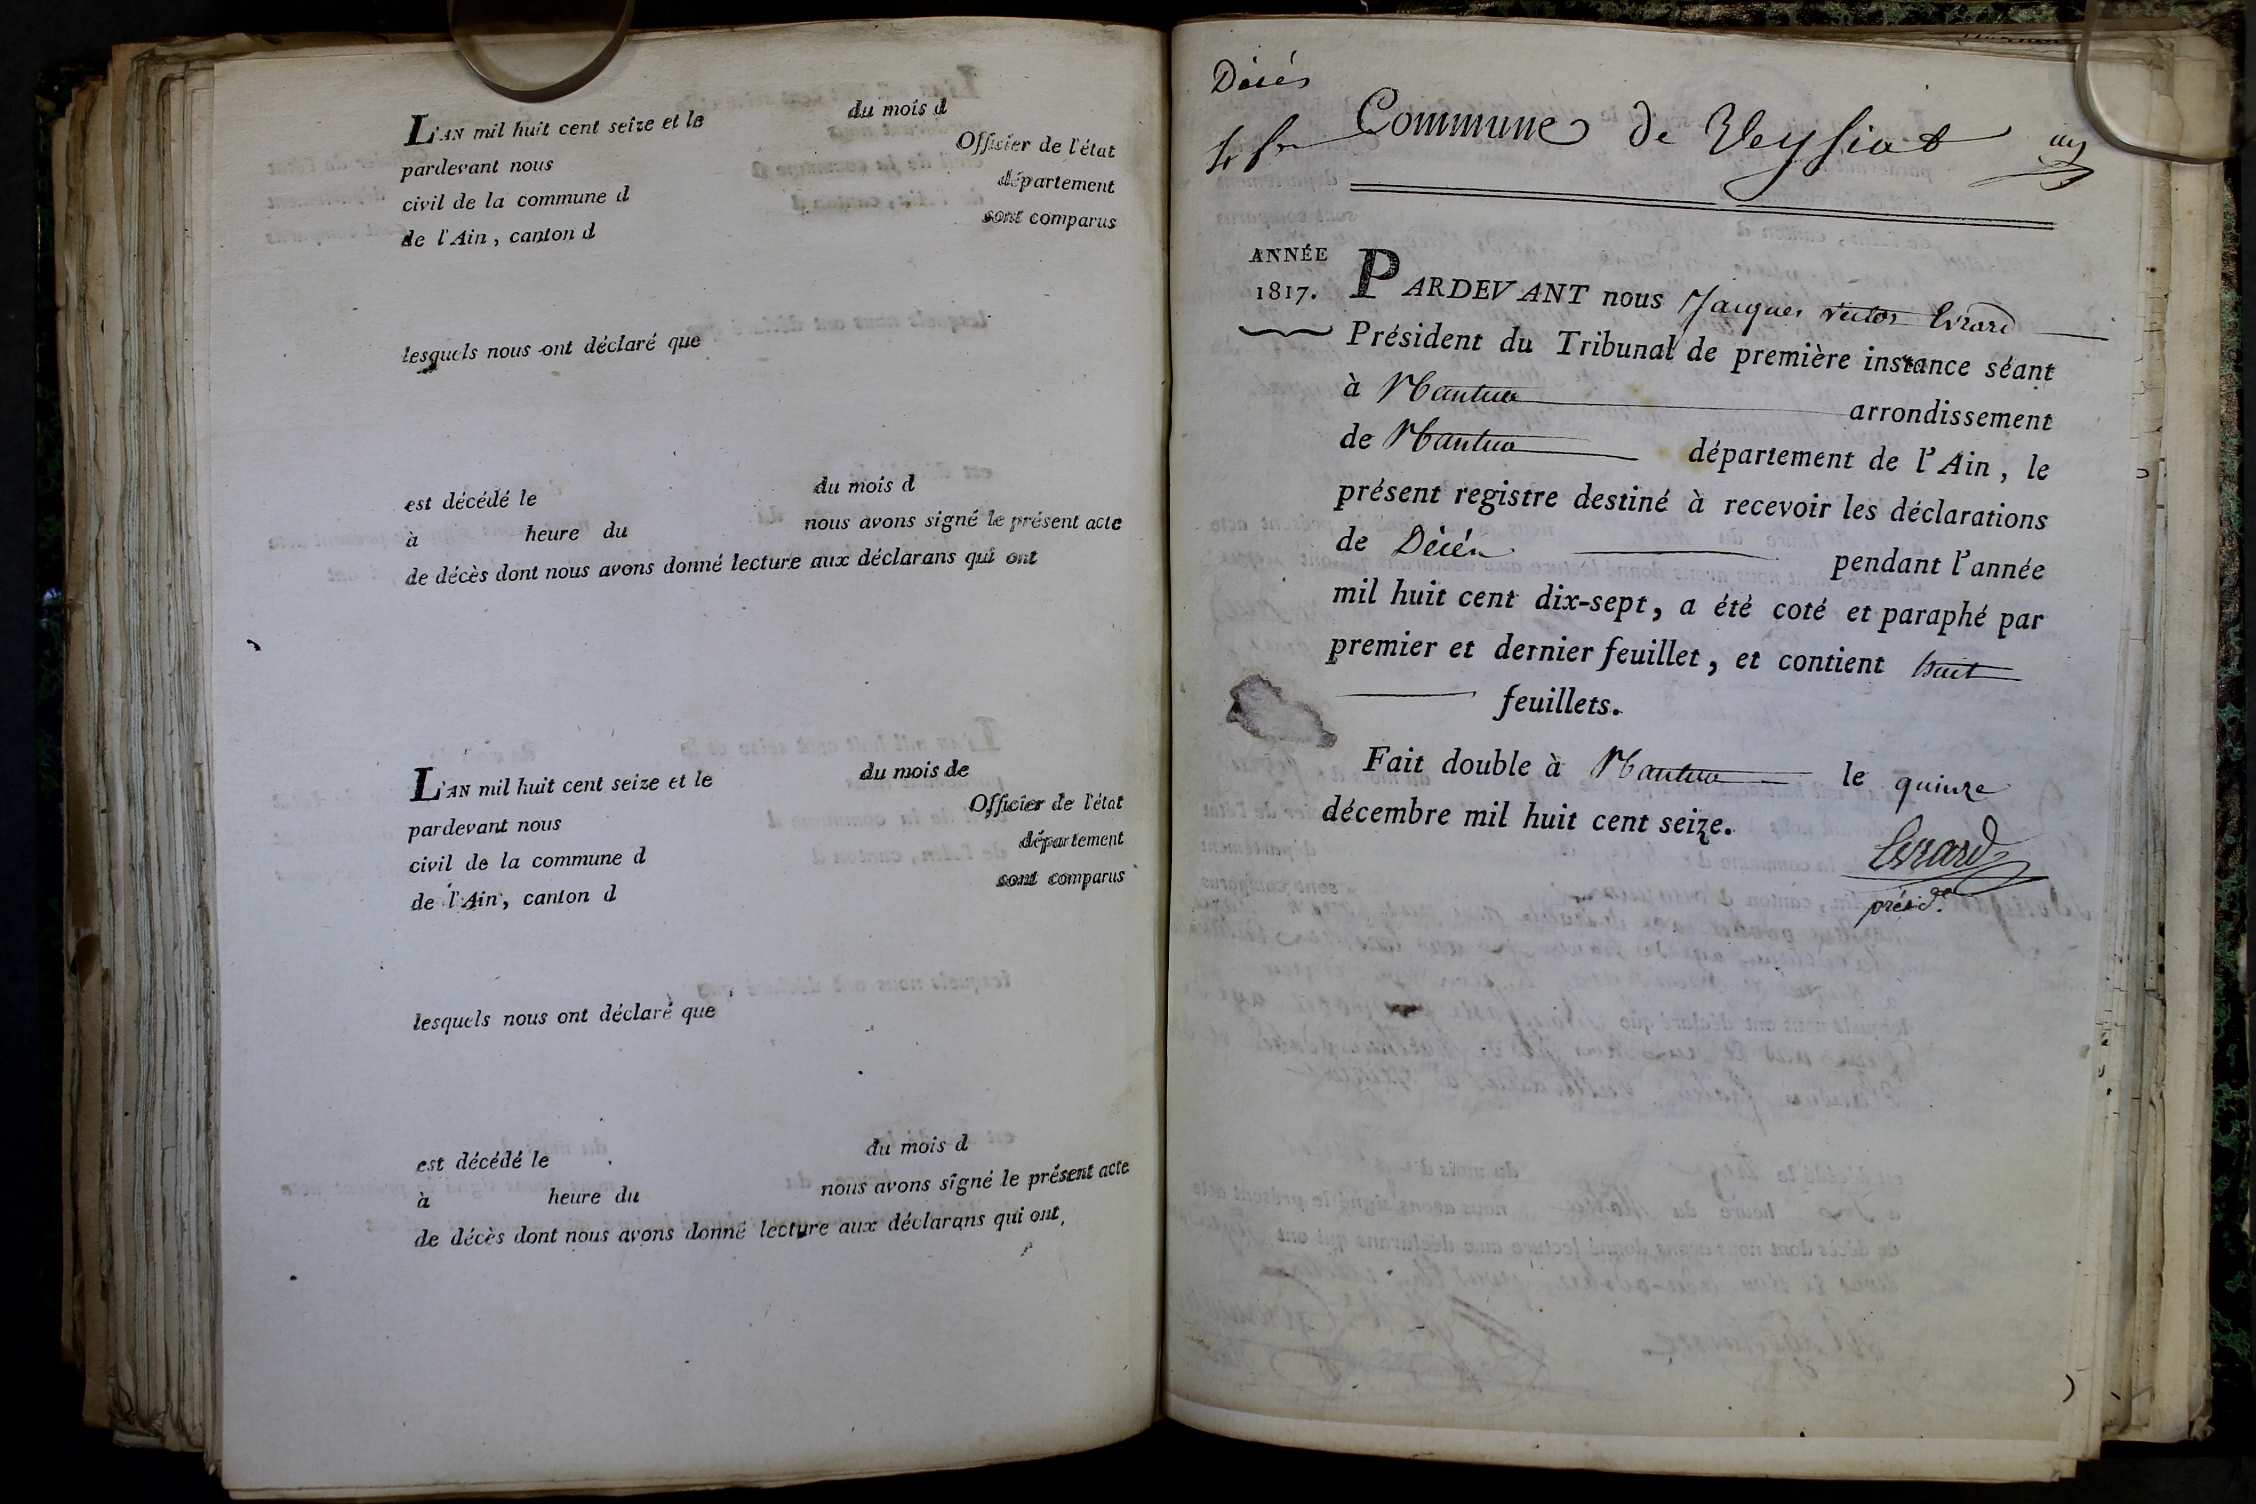 L'AN mil huit cent seize et le du mois d
pardevant nous Officier de l'état
civil de la commune d département
de l'Ain, canton d sont comparus
lesquels nous ont déclaré que
est décédé le du mois d
à heure du nous avons signé le présent acte
de décès dont nous avons donné lecture aux déclarans qui ont
L'AN mil huit cent seize et le du mois de
pardevant nous Officier de l'état
civil de la commune d département
de l'Ain, canton d sont comparus
lesquels nous ont déclaré que
est décédé le du mois d
à heure du nous avons signé le présent acte
de décès dont nous avons donné lecture aux déclarans qui ont
Décés
Commune de Veysiat
ANNÉE
1817.
PARDEVANT nous Jacques victor Evrard
Président du Tribunal de première instance séant
à Nantua arrondissement
de Nantua département de l'Ain, le
présent registre destiné à recevoir les déclarations
de Décés pendant l'année
mil huit cent dix-sept, a été coté et paraphé par
premier et dernier feuillet, et contient huit
feuillets.
Fait double à Nantua le quinze
décembre mil huit cent seize.
Evrard
présid.